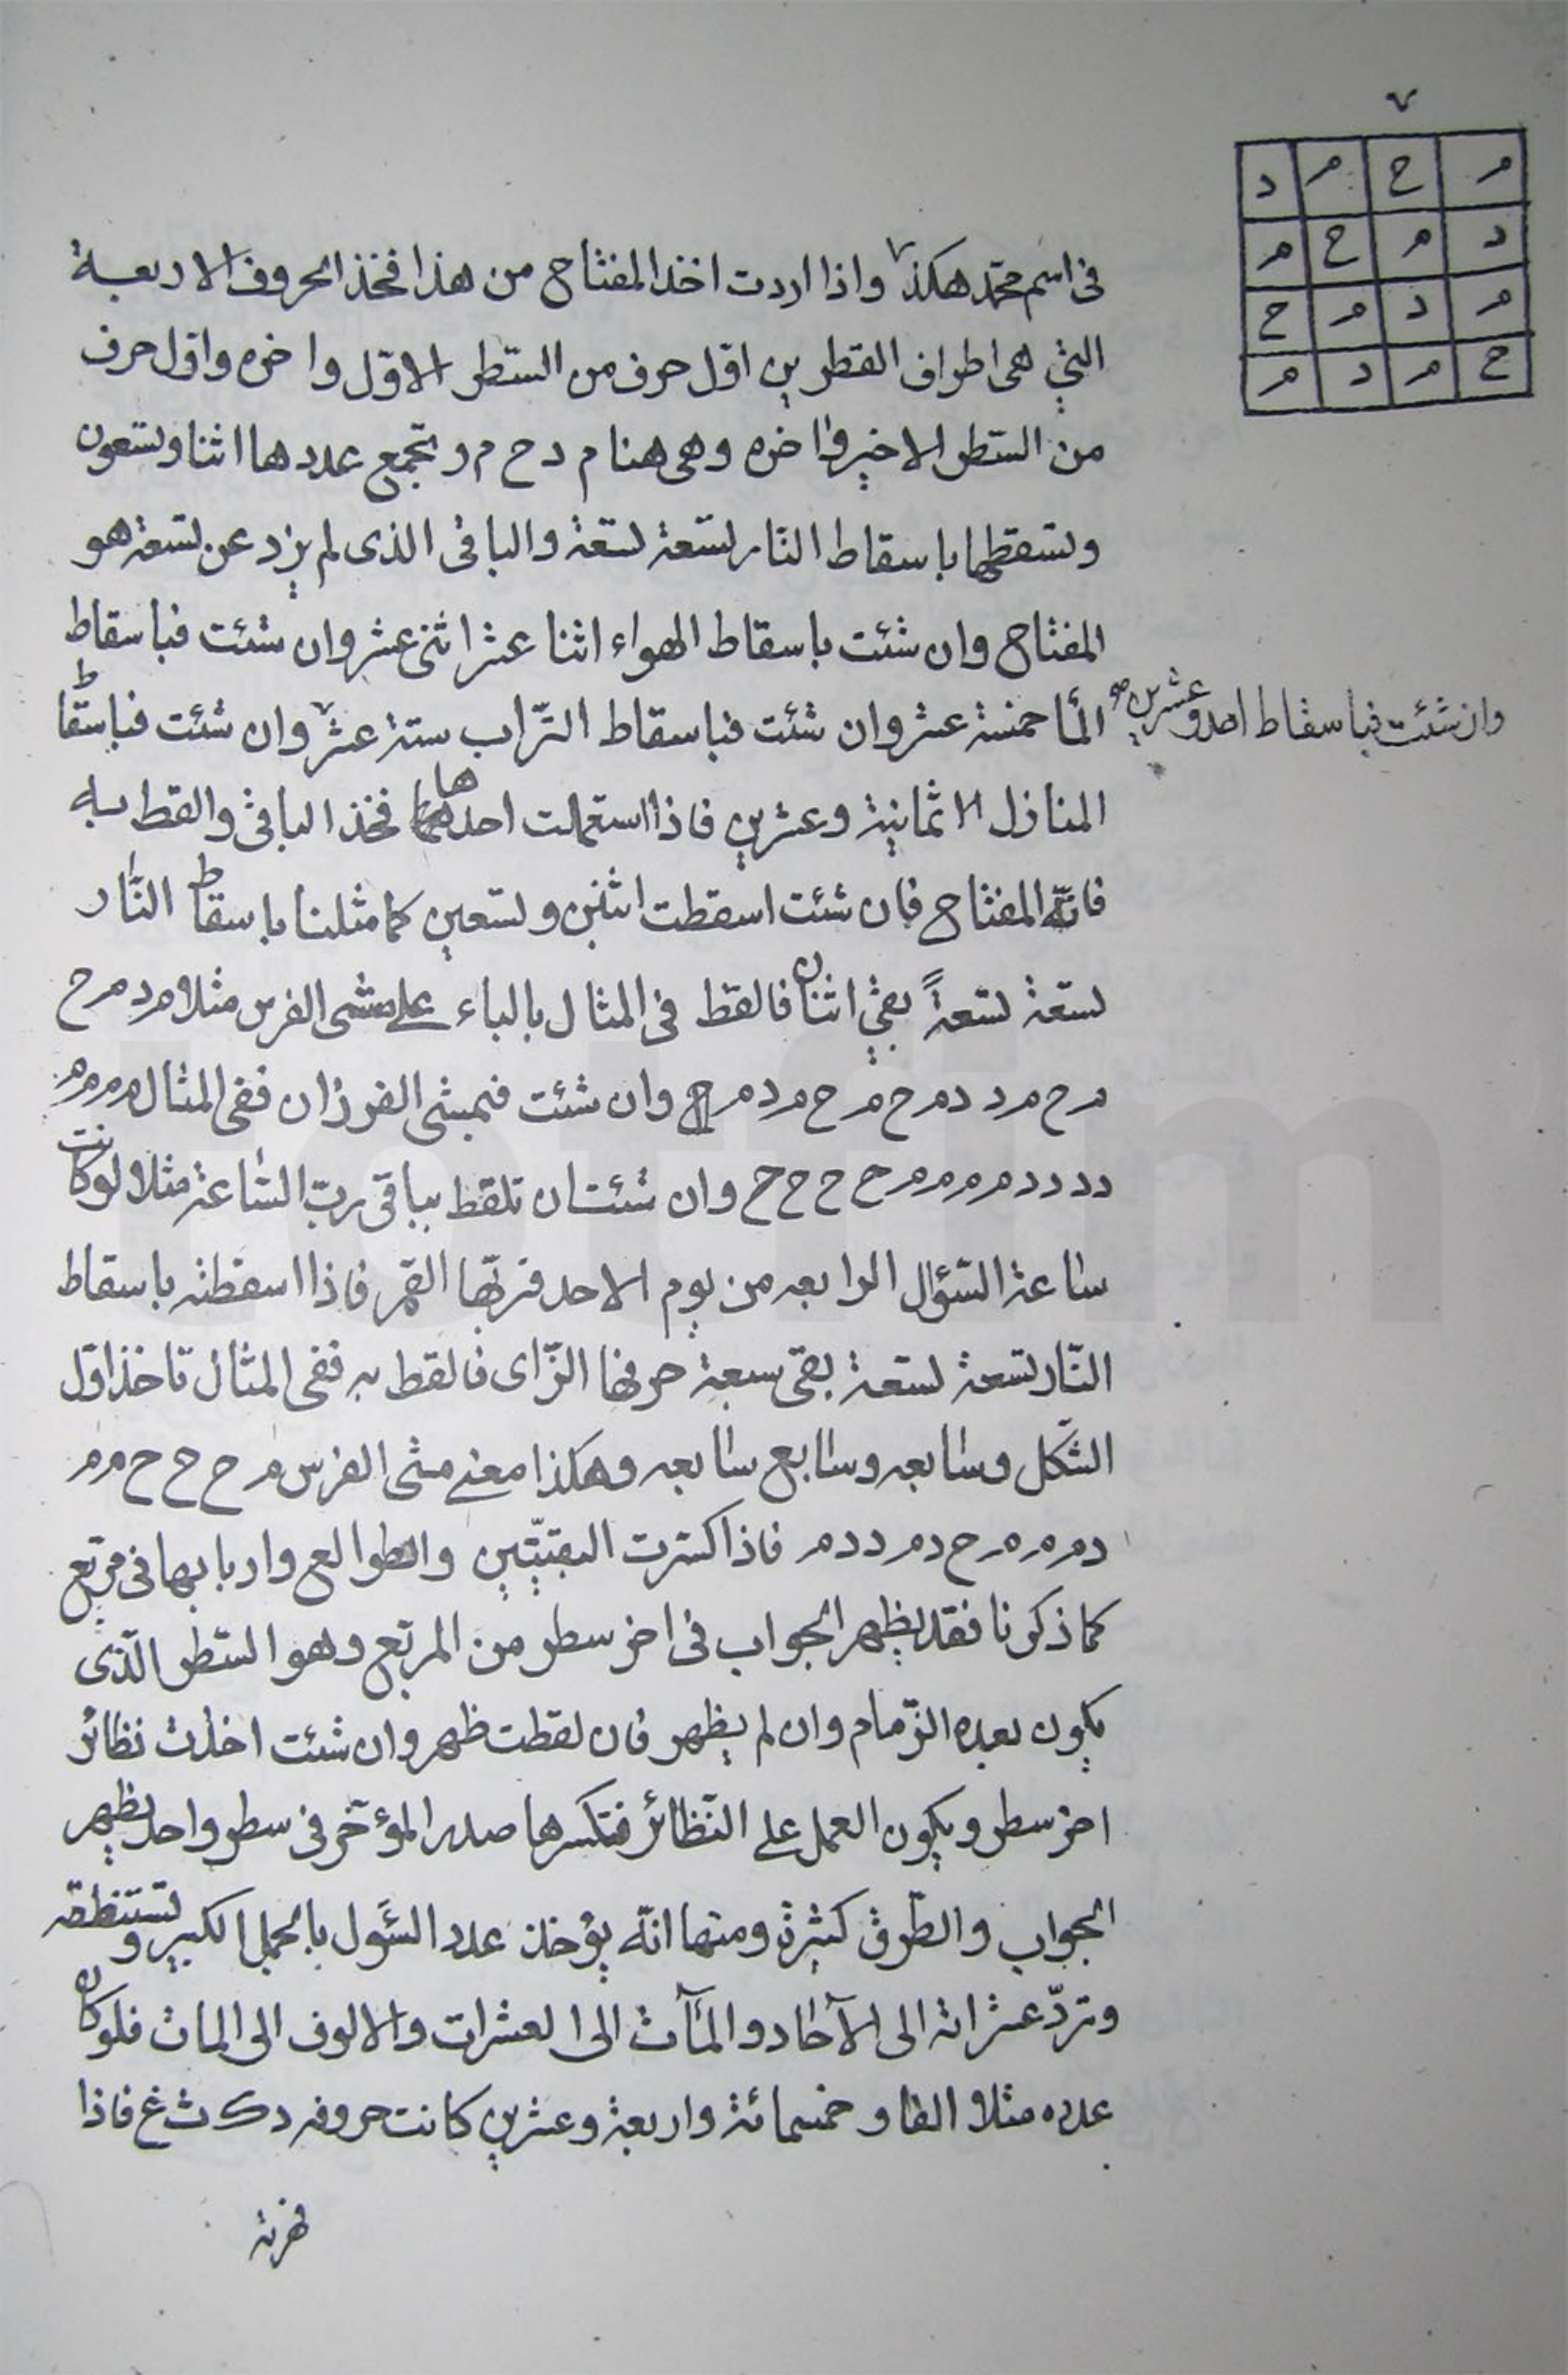 م ح م د
د م ح م
م د م ح
ح م د م
فى اسم محمّد هكذا واذا اردت اخذ المفتاح من هذا فخذ الحروف الاربعة
التى هى اطراف القطرين اوّل حرف من السّطر الاوّل واخره واوّل حرف
من السّطر الاخير واخره وهى هنا م د ح م و تجمع عددها اثنا وتسعون
وتسقطها باسقاط النّار تسعة تسعة والباقى الذى لم يزد عن تسعة هو
المفتاح وان شئت باسقاط الهواء اثنا عشر اثنى عشر وان شئت فباسقاط
المآ خمسة عشر وان شئت فباسقاط التّراب ستة عشر وان شئت فباسقاط
وان شئت فباسقاط احد وعشرين
المنازل الاثمانية وعشرين فاذا استعملت احدها فخذ الباقى والقط به
فانّه المفتاح فان شئت اسقطت اثنين وتسعين كما مثلنا باسقاط النّار
تسعة تسعةً بقى اثنان فالقط فى المثال بالباء على مشى الفرس مثلا م د م ح
م ح م د د م ح م ح م د م ح وان شئت فبمشى الفرزان ففى المثال م م م م
د د د د م م م م ح ح ح ح وان شئت ان تلقط بباقى ربّ السّاعة مثلا لو كانت
ساعة السّؤال الرابعه من يوم الاحد فربّها القمر فاذا اسقطته باسقاط
النّار تسعة تسعة بقى سبعة حرفها الزّاى فالقط به ففى المثال تاخذ اوّل
الشّكل وسابعه وسابع سابعه وهكذا معنى مشى الفرس م ح ح ح م م
د م م م ح د م د د م فاذا كسّرت البقيّتين والطوالع واربابها فى مربّع
كما ذكرنا فقد يظهر الجواب فى اخر سطر من المربّع وهو السّطر الّذى
يكون بعده الزّمام وان لم يظهر فان لقطت ظهر وان شئت اخذت نظائر
اخر سطر ويكون العمل على النّظائر فتكسرها صدر المؤخّر فى سطر واحد يظهر
الجواب والطّرق كثيرة ومنها انّه يؤخذ عدد السّؤل بالجمل الكبير وتستنطقه
وتردّ عشراته الى الآحاد والمآت الى العشرات والالوف الى المات فلو كان
عدده مثلا الفا و خمسمائة واربعة وعشرين كانت حروفه د ك ث غ فاذا